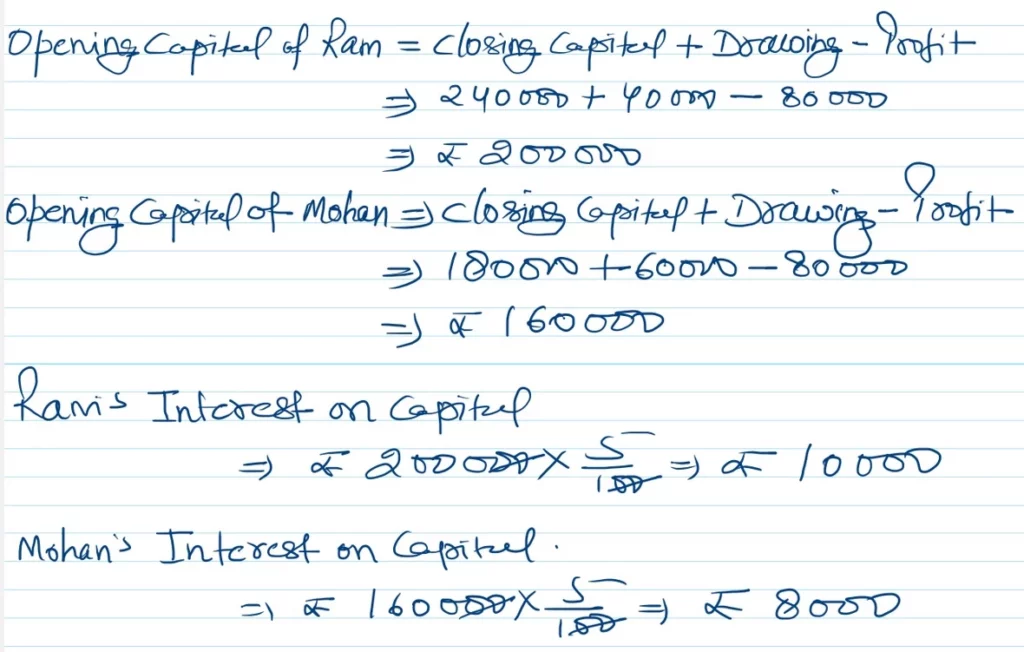 Opening Capital of Ram = Closing Capital + Drawing - Profit
⇒ 240000 + 40000 - 80000
⇒ ₹ 200000
Opening Capital of Mohan ⇒ Closing Capital + Drawing - Profit
⇒ 180000 + 60000 - 80000
⇒ ₹ 160000
Ram's Interest on Capital
⇒ ₹ 200000 × 5/100 ⇒ ₹ 10000
Mohan's Interest on Capital.
⇒ ₹ 160000 × 5/100 ⇒ ₹ 8000